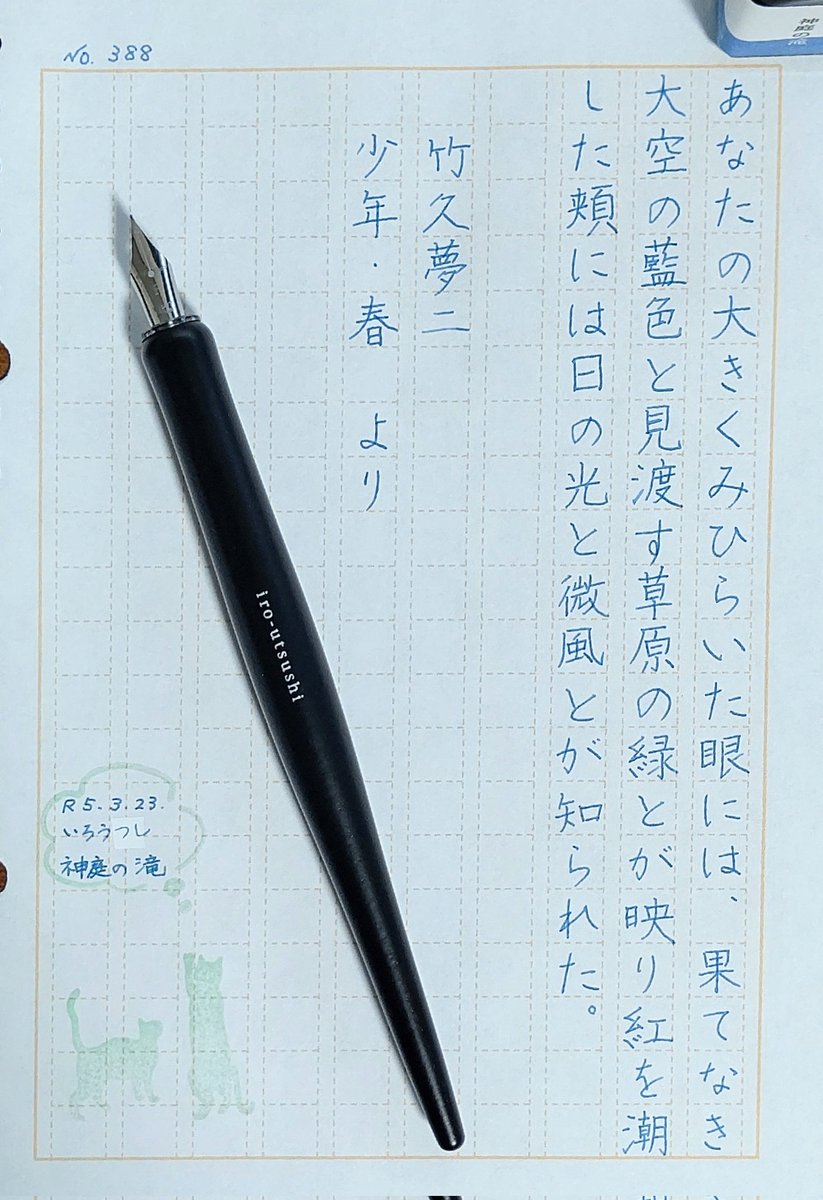 No. 388
あなたの大きくみひらいた眼には、果てなき
大空の藍色と見渡す草原の緑とが映り紅を潮
した頬には日の光と微風とが知られた。
竹久夢二
少年・春　より
iro-utsushi
R5.3.23.
いろうつし
神庭の滝
神庭の滝